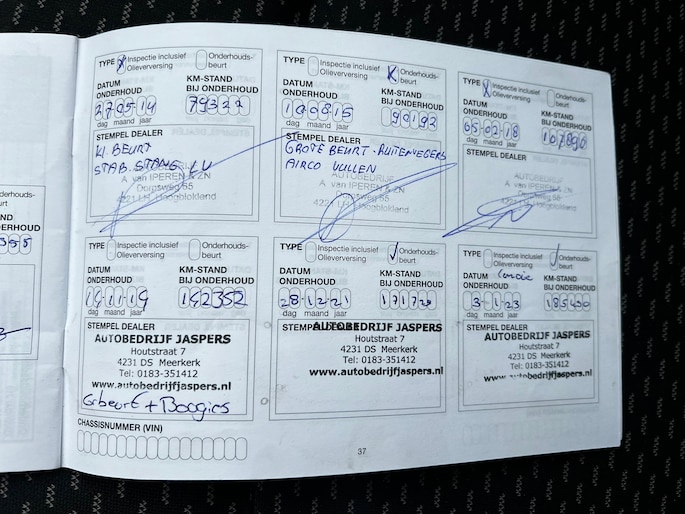 TYPE X Inspectie inclusief Olieverversing Onderhouds-beurt
DATUM ONDERHOUD KM-STAND BIJ ONDERHOUD
270514 79327
dag maand jaar
STEMPEL DEALER
KL BEURT
STAB. STANG LV
AUTOBEDRIJF
A. van IPEREN & ZN
Dorpsweg 55
4221 LH Hoogblokland
TYPE Inspectie inclusief Olieverversing X Onderhouds-beurt
DATUM ONDERHOUD KM-STAND BIJ ONDERHOUD
100815 90192
dag maand jaar
STEMPEL DEALER
GROTE BEURT - RUITENWEGERS
AIRCO VULLEN
AUTOBEDRIJF
A. van IPEREN & ZN
Dorpsweg 55
4221 LH Hoogblokland
TYPE X Inspectie inclusief Olieverversing Onderhouds-beurt
DATUM ONDERHOUD KM-STAND BIJ ONDERHOUD
050218 107890
dag maand jaar
STEMPEL DEALER
AUTOBEDRIJF
A. van IPEREN & ZN
Dorpsweg 55
4221 LH Hoogblokland
houds-
ND
ERHOUD
TYPE Inspectie inclusief Olieverversing Onderhouds-beurt
DATUM ONDERHOUD KM-STAND BIJ ONDERHOUD
191119 142352
dag maand jaar
STEMPEL DEALER
AUTOBEDRIJF JASPERS
Houtstraat 7
4231 DS Meerkerk
Tel: 0183-351412
www.autobedrijfjaspers.nl
Grbeurt + Boogies
TYPE Inspectie inclusief Olieverversing Onderhouds-beurt
DATUM ONDERHOUD KM-STAND BIJ ONDERHOUD
28-12-21 171720
dag maand jaar
STEMPEL DEALER
AUTOBEDRIJF JASPERS
Houtstraat 7
4231 DS Meerkerk
Tel: 0183-351412
www.autobedrijfjaspers.nl
TYPE Inspectie inclusief Olieverversing Onderhouds-beurt
DATUM ONDERHOUD KM-STAND BIJ ONDERHOUD
3-1-23 185400
dag maand jaar
STEMPEL DEALER
AUTOBEDRIJF JASPERS
Houtstraat 7
4231 DS Meerkerk
Tel: 0183-351412
www.autobedrijfjaspers.nl
CHASSISNUMMER (VIN)
37